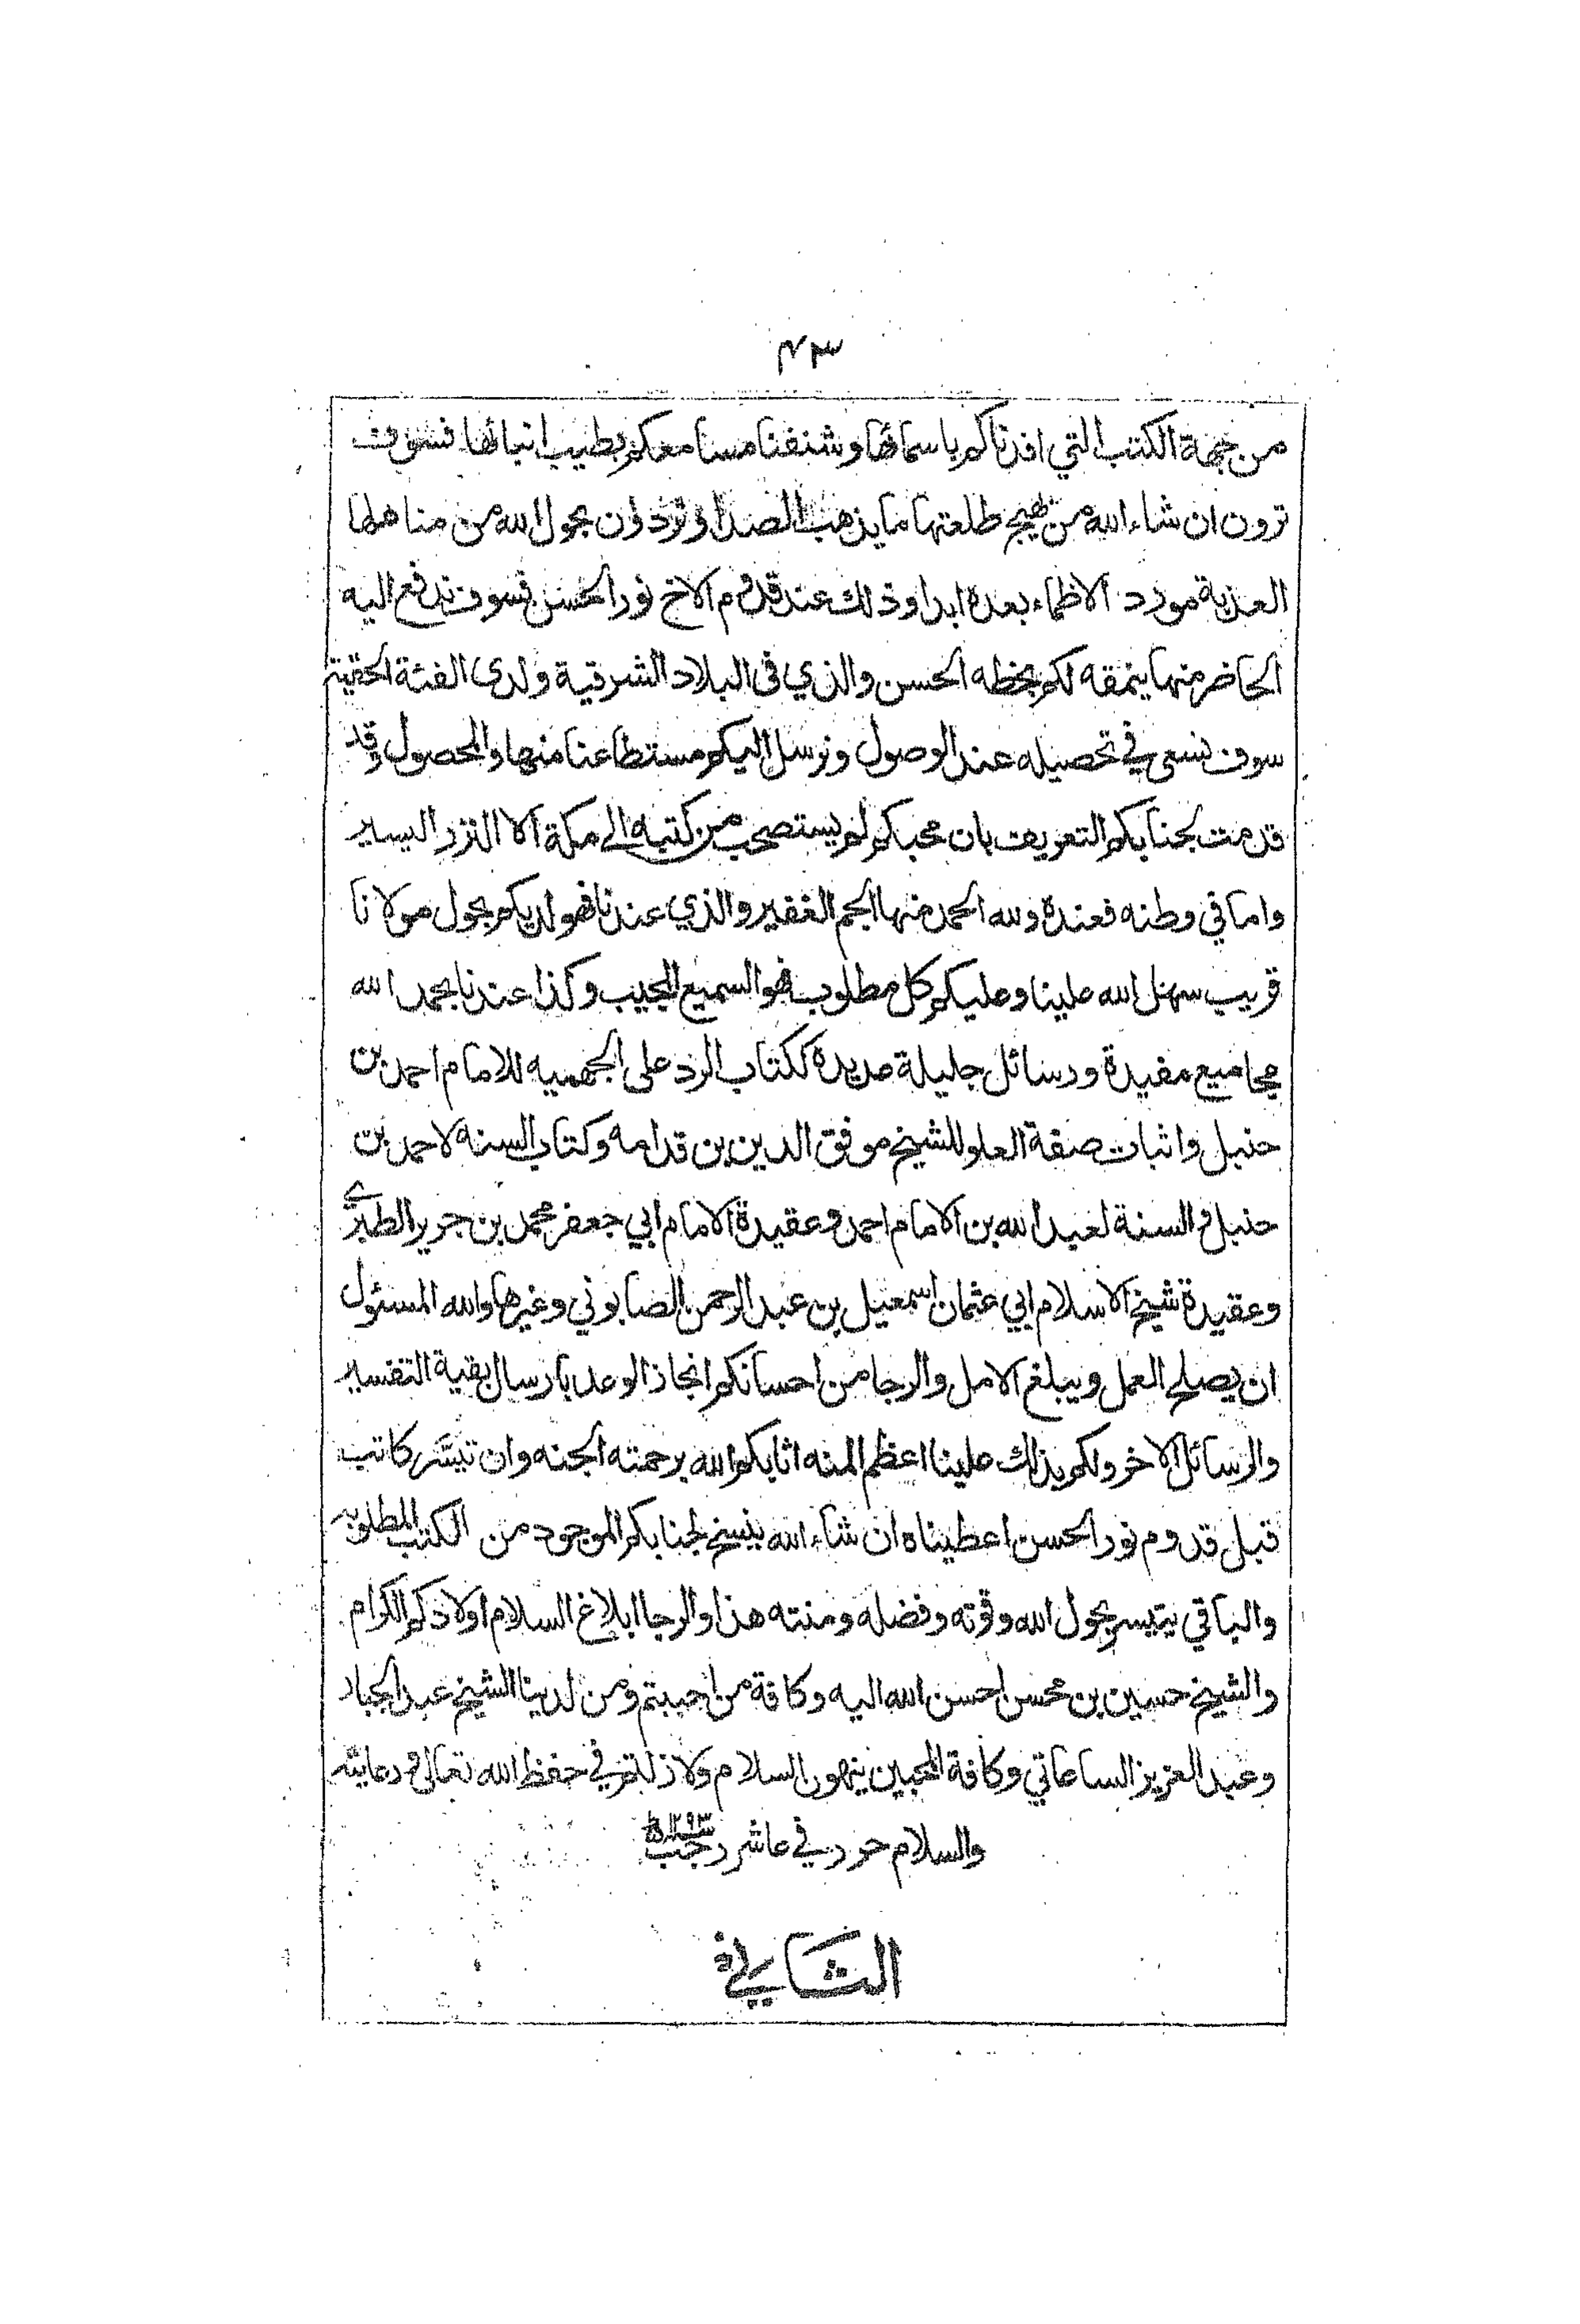 ٤٣
من جهة الكتب التي افدناكم باسمائها وشنفنا مسامعكم بطيب انبائها فسوف
ترون ان شاء الله من بهيج طلعتها ما يذهب الصدا وتردون بحول الله من مناهلها
العذبة مورد الاظماء بعده ابدا وذلك عند قدوم الاخ نور الحسن فسوف ندفع اليه
الحاضر منها ينمقه لكم بخطه الحسن والذي في البلاد الشرقية ولدى الفئة الحقيقة
سوف نسعى في تحصيله عند الوصول ونرسل اليكم مستطاعنا منها والمحصول وقد
قدمت لجنابكم التعريف بان محبكم لم يستصحب من كتبه الى مكة الا النزر اليسير
واما في وطنه فعنده ولله الحمد منها الجم الغفير والذي عندنا فهو لديكم بحول مولانا
قريب سهل الله علينا وعليكم كل مطلوب فهو السميع المجيب وكذا عندنا بحمد الله
مجاميع مفيدة ورسائل جليلة عديدة ككتاب الرد على الجهميه للامام احمد بن
حنبل واثبات صفة العلو للشيخ موفق الدين بن قدامه وكتاب السنه لاحمد بن
حنبل والسنة لعبد الله بن الامام احمد وعقيدة الامام ابي جعفر محمد بن جرير الطبري
وعقيدة شيخ الاسلام ابي عثمان اسمعيل بن عبد الرحمن الصابوني وغيرها والله المسئول
ان يصلح العمل ويبلغ الامل والرجا من احسانكم انجاز الوعد بارسال بقية التفسير
والرسائل الاخر ولكم بذلك علينا اعظم المنه اثابكم الله برحمته الجنه وان تيسّر كاتب
قبل قدوم نور الحسن اعطيناه ان شاء الله ينسخ لجنابكم الموجود من الكتب المطلوبه
والباقي يتيسر بحول الله وقوته وفضله ومنته هذا والرجا ابلاغ السلام اولادكم الكرام
والشيخ حسين بن محسن احسن الله اليه وكافة من احببتم ومن لدينا الشيخ عبد الجبار
وعبد العزيز الساعاتي وكافة المحبين ينهون السلام ولا زلتم في حفظ الله تعالى ورعايته
والسلام حرر في عاشر رجب سنة ١٢٩٣ھ
الثاني